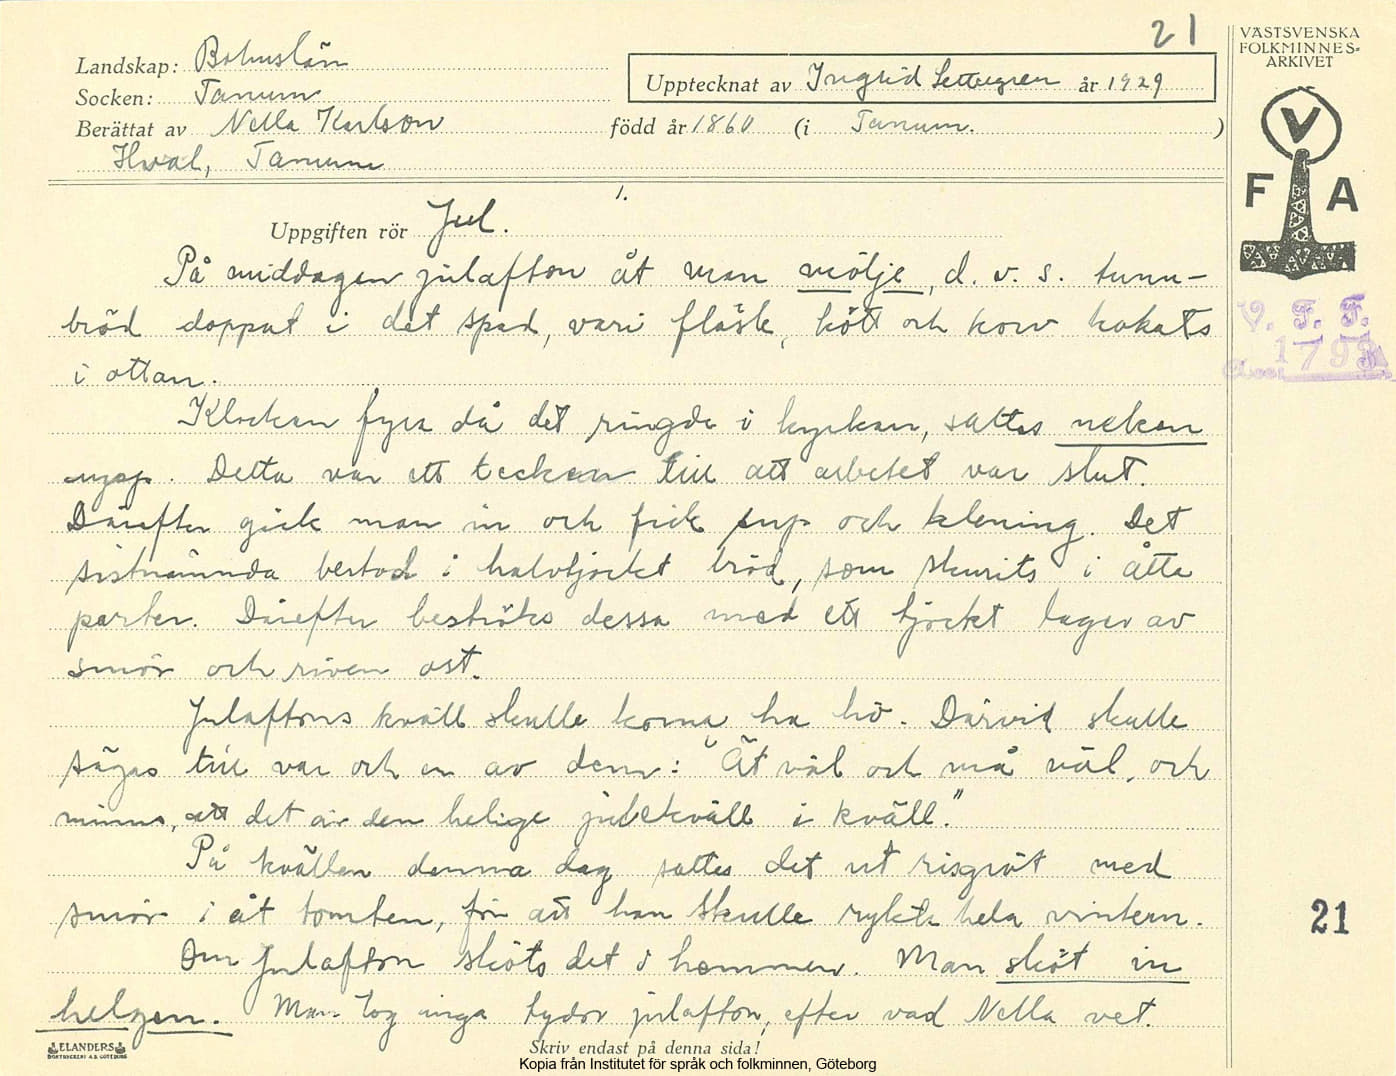 21
Landskap: Bohuslän
Socken: Tanum
Upptecknat av Ingrid Settergren år 1929
Berättat av Nella Karlson född år 1860 (i Tanum.)
Hval, Tanum
1.
Uppgiften rör Jul.
På middagen julafton åt man mölje, d. v. s. tunn-
bröd doppat i det spad, vari fläsk, kött och korv kokats
i ottan.
Klockan fyra då det ringde i kyrkan, sattes neken
upp. Detta var ett tecken till att arbetet var slut.
Därefter gick man in och fick sup och klening. Det
sistnämnda bestod i halvtjockt bröd, som skurits i åtta
parter. Därefter beströks dessa med ett tjockt lager av
smör och riven ost.
Julaftons kväll skulle korna ha hö. Därvid skulle
sägas till var och en av dem: "Ät väl och må väl, och
minns, att det är den helige julekväll i kväll."
På kvällen denna dag sattes det ut risgröt med
smör i åt tomten, för att han skulle rykta hela vintern.
Om Julafton sköts det i hemmen. Man sköt in
helgen. Man tog inga tydor julafton, efter vad Nella vet.
Skriv endast på denna sida!
ELANDERS
BOKTRYCKERI A.B. GÖTEBORG
VÄSTSVENSKA
FOLKMINNES-
ARKIVET
V
F A
V. F. F.
1793
21
Kopia från Institutet för språk och folkminnen, Göteborg